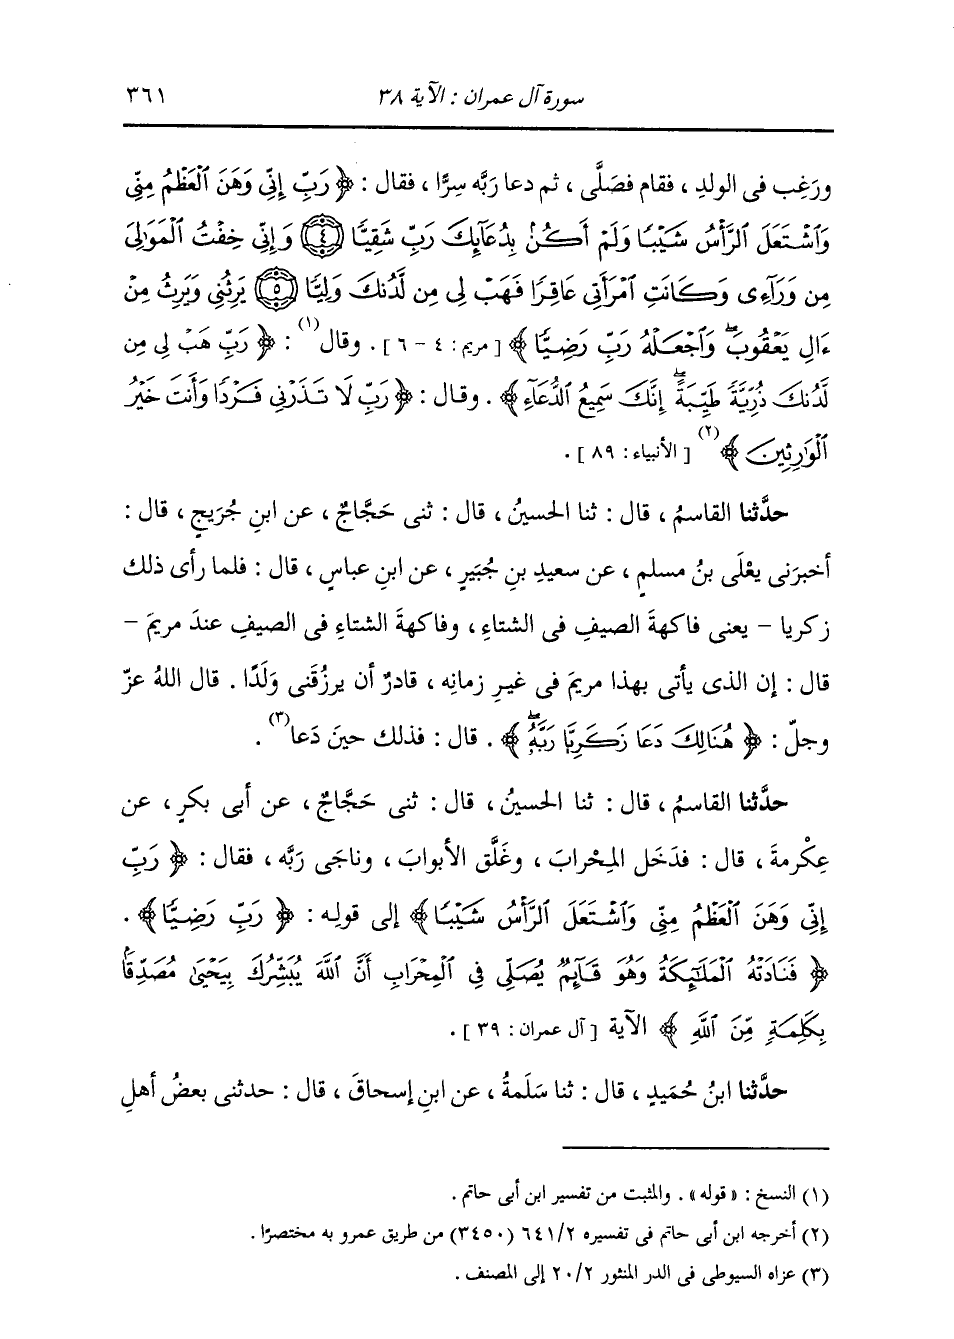 سورة آل عمران : الآية ٣٨ ٣٦١
ورَغِب فى الولدِ ، فقام فصَلَّى ، ثم دعا رَبَّه سِرًّا ، فقال : ﴿ رَبِّ إِنِّى وَهَنَ ٱلْعَظْمُ مِنِّى
وَٱشْتَعَلَ ٱلرَّأْسُ شَيْبًا وَلَمْ أَكُنۢ بِدُعَآئِكَ رَبِّ شَقِيًّا ﴿٤﴾ وَإِنِّى خِفْتُ ٱلْمَوَٰلِىَ
مِن وَرَآءِى وَكَانَتِ ٱمْرَأَتِى عَاقِرًا فَهَبْ لِى مِن لَّدُنكَ وَلِيًّا ﴿٥﴾ يَرِثُنِى وَيَرِثُ مِنْ
ءَالِ يَعْقُوبَۖ وَٱجْعَلْهُ رَبِّ رَضِيًّا ﴾ [ مريم : ٤ - ٦ ] . وقال(١) : ﴿ رَبِّ هَبْ لِى مِن
لَّدُنكَ ذُرِّيَّةً طَيِّبَةًۖ إِنَّكَ سَمِيعُ ٱلدُّعَآءِ ﴾ . وقال : ﴿ رَبِّ لَا تَذَرْنِى فَرْدًا وَأَنتَ خَيْرُ
ٱلْوَٰرِثِينَ ﴾(٢) [ الأنبياء : ٨٩ ] .
حدَّثنا القاسمُ ، قال : ثنا الحسينُ ، قال : ثنى حَجَّاجٌ ، عن ابنِ جُرَيجٍ ، قال :
أخبرَنى يعْلَى بنُ مسلمٍ ، عن سعيدِ بنِ جُبَيرٍ ، عن ابنِ عباسٍ ، قال : فلما رأى ذلك
زكريا - يعنى فاكهةَ الصيفِ فى الشتاءِ ، وفاكهةَ الشتاءِ فى الصيفِ عندَ مريمَ -
قال : إن الذى يأتى بهذا مريمَ فى غيرِ زمانِه ، قادرٌ أن يرزُقَنى وَلَدًا . قال اللهُ عزّ
وجلّ : ﴿ هُنَالِكَ دَعَا زَكَرِيَّا رَبَّهُۥۖ ﴾ . قال : فذلك حينَ دَعا(٣) .
حدَّثنا القاسمُ ، قال : ثنا الحسينُ ، قال : ثنى حَجَّاجٌ ، عن أبى بكرٍ ، عن
عِكْرمةَ ، قال : فدَخَل المِحْرابَ ، وغَلَّق الأبوابَ ، وناجَى رَبَّه ، فقال : ﴿ رَبِّ
إِنِّى وَهَنَ ٱلْعَظْمُ مِنِّى وَٱشْتَعَلَ ٱلرَّأْسُ شَيْبًا ﴾ إلى قولِه : ﴿ رَبِّ رَضِيًّا ﴾ .
﴿ فَنَادَتْهُ ٱلْمَلَٰٓئِكَةُ وَهُوَ قَآئِمٌ يُصَلِّى فِى ٱلْمِحْرَابِ أَنَّ ٱللَّهَ يُبَشِّرُكَ بِيَحْيَىٰ مُصَدِّقًۢا
بِكَلِمَةٍ مِّنَ ٱللَّهِ ﴾ الآية [ آل عمران : ٣٩ ] .
حدَّثنا ابنُ حُمَيدٍ ، قال : ثنا سَلَمةُ ، عن ابنِ إسحاقَ ، قال : حدثنى بعضُ أهلِ
(١) النسخ : « قوله » . والمثبت من تفسير ابن أبى حاتم .
(٢) أخرجه ابن أبى حاتم فى تفسيره ٦٤١/٢ (٣٤٥٠) من طريق عمرو به مختصرًا .
(٣) عزاه السيوطى فى الدر المنثور ٢٠/٢ إلى المصنف .